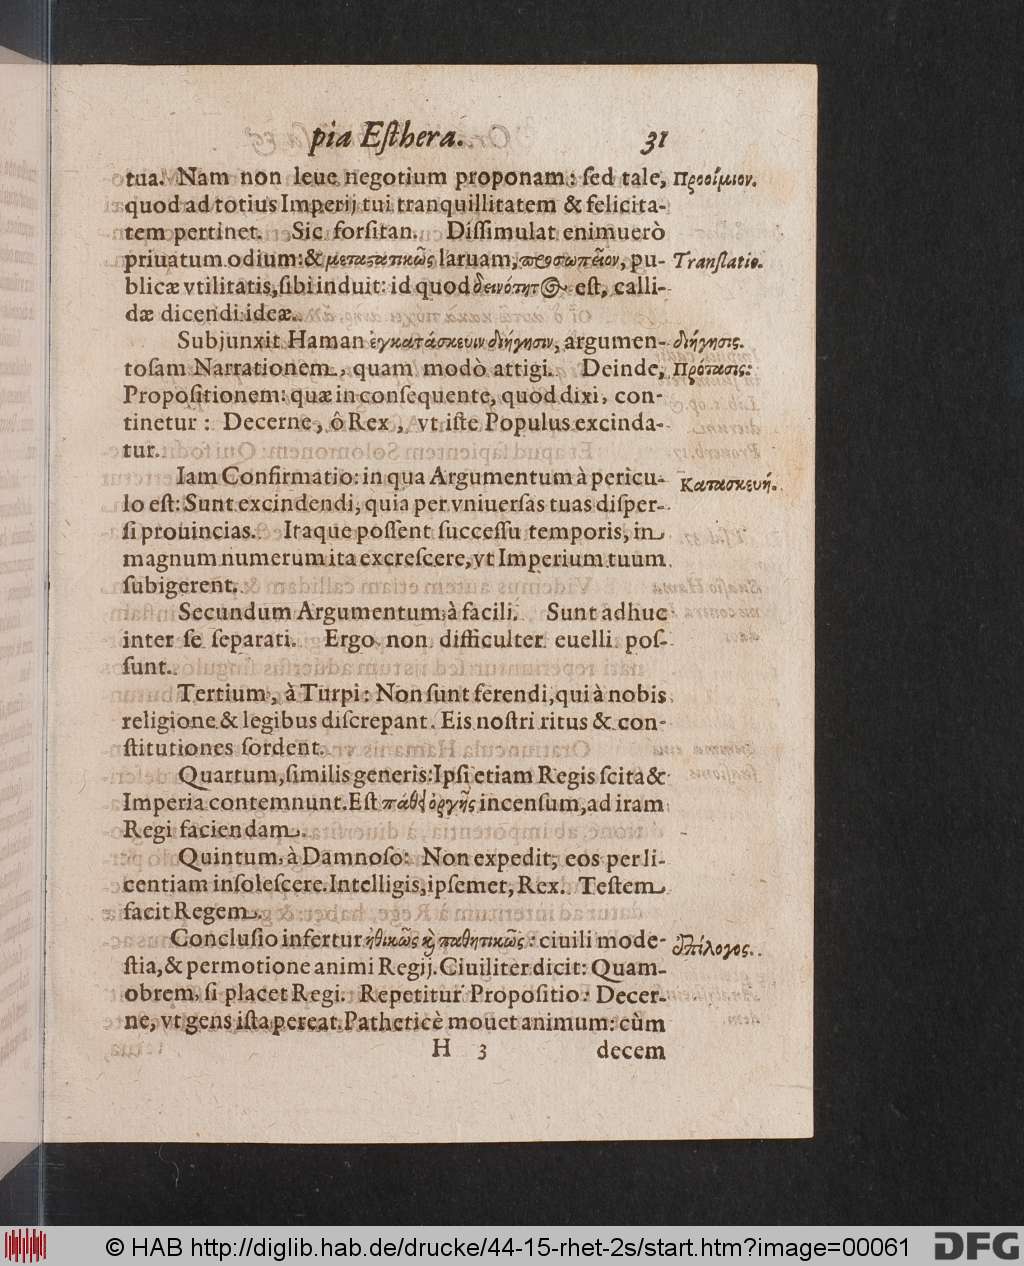 pia Eſthera. 31
tua. Nam non leue negotium proponam: ſed tale, Προοίμιον.
quod ad totius Imperij tui tranquillitatem & felicita-
tem pertinet. Sic forſitan. Diſſimulat enimuerò
priuatum odium: & μεταστατικῶς laruam, προσωπεῖον, pu- Tranſlatio.
blicæ vtilitatis, ſibi induit: id quod δεινότητος est, calli-
dæ dicendi ideæ.
Subjunxit Haman ἐγκατάσκευιν διήγησιν, argumen- διήγησις.
toſam Narrationem, quam modò attigi. Deinde, Πρότασις:
Propoſitionem: quæ in conſequente, quod dixi, con-
tinetur : Decerne, ô Rex, vt iſte Populus excinda-
tur.
Iam Confirmatio: in qua Argumentum à pericu- Κατασκευή.
lo eſt: Sunt excindendi, quia per vniuerſas tuas diſper-
ſi prouincias. Itaque poſſent ſucceſſu temporis, in
magnum numerum ita excreſcere, vt Imperium tuum
ſubigerent.
Secundum Argumentum à facili. Sunt adhuc
inter ſe ſeparati. Ergo non difficulter euelli poſ-
ſunt.
Tertium, à Turpi: Non ſunt ferendi, qui à nobis
religione & legibus diſcrepant. Eis noſtri ritus & con-
ſtitutiones ſordent.
Quartum, ſimilis generis: Ipſi etiam Regis ſcita &
Imperia contemnunt. Eſt πάθος ὀργῆς incenſum, ad iram
Regi faciendam.
Quintum, à Damnoſo: Non expedit, eos per li-
centiam inſoleſcere. Intelligis, ipſemet, Rex. Teſtem
facit Regem.
Concluſio infertur ἠθικῶς καὶ παθητικῶς: ciuili mode- Ἐπίλογος.
ſtia, & permotione animi Regij. Ciuiliter dicit: Quam-
obrem, ſi placet Regi. Repetitur Propoſitio: Decer-
ne, vt gens iſta pereat. Patheticè mouet animum: cùm
H 3 decem
© HAB http://diglib.hab.de/drucke/44-15-rhet-2s/start.htm?image=00061 DFG